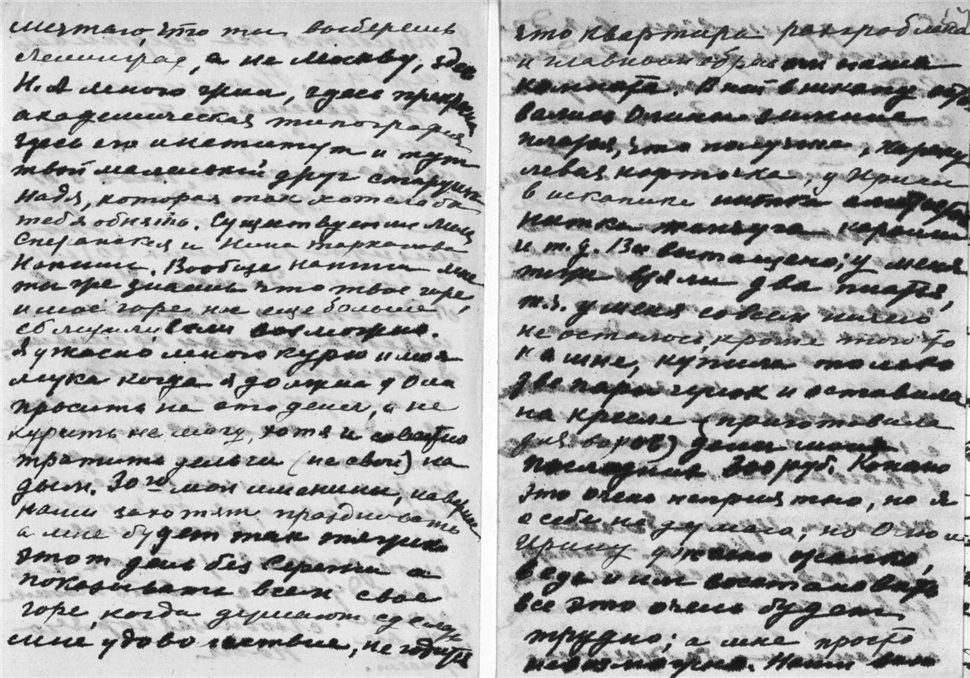 мечтаю, что ты выберешь
Ленинград, а не Москву, здесь
Н. Я много грил, здесь прекрасная
академическая типография
здесь его институт и тут
твой маленький друг старушка
Надя, которая так хотела бы
тебя обнять. Существует ли Миц
Сперанская и Нина
Напиши. Вообще напиши мне
ты где знаешь что твое горе
и мое горе нас еще больше
сблизили если возможно.
Я ужасно много курю и моя
мука когда я должна у Оли
просить на это денег, а не
курить не могу, хотя и совестно
тратить деньги (не свои) на
дым. 30го мои именины, наверно
наши захотят праздновать
а мне будет так тяжело
этот день без Сережи а
показывать всем свое
горе, когда думают сделать
мне удовольствие, не годится
что квартира разграблена
и главным образом наша
комната. В ней в шкапу
вались Олины зимние
платья, что получше, караку
левая кофточка, у Ирины
в шкапике нитка
нитка жемчуга
и т. д. Все вытащено; у меня
тоже взяли два платья,
т. я. у меня совсем ничего
не осталось, кроме того что
на мне, купила только
две пары чулок и оставила
на кресле (приготовила
для воров) деньги мои
последние 300 руб. Конечно
это очень неприятно, но я
о себе не думаю; но Олю и
Ирину ужасно жалко,
ведь и им восстановить
все это очень будет
трудно; а мне просто
невозможно. Наши